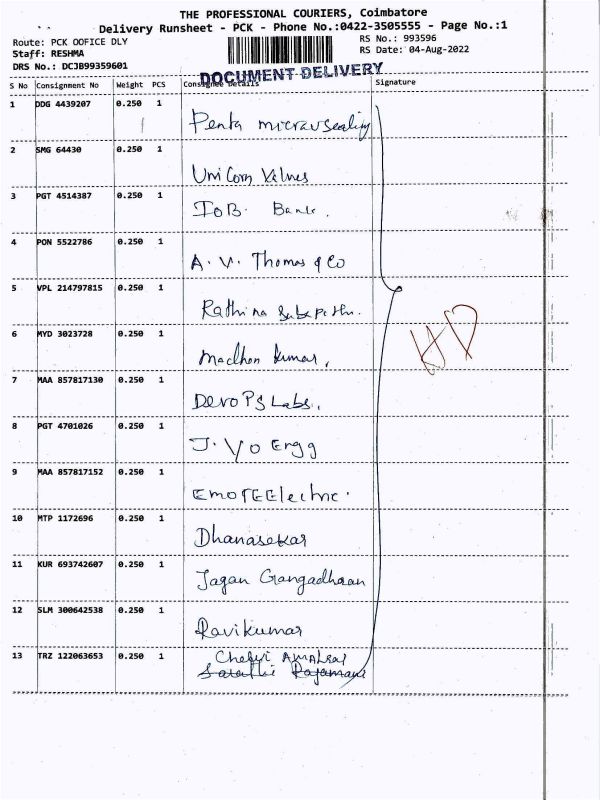 THE PROFESSIONAL COURIERS, Coimbatore
Delivery Runsheet - PCK - Phone No.:0422-3505555 - Page No.:1
Route: PCK OOFICE DLY
RS No.: 993596
Staff: RESHMA
RS Date: 04-Aug-2022
DRS No.: DCJB99359601
DOCUMENT DELIVERY
S No Consignment No Weight PCS Consignee Details Signature
1 DDG 4439207 0.250 1
Penta
2 SMG 64430 0.250 1
UniCorn Valves
3 PGT 4514387 0.250 1
IOB. Bank.
4 PON 5522786 0.250 1
A. V. Thomas & Co
5 VPL 214797815 0.250 1
Rathina
6 MYD 3023728 0.250 1
Madhan Kumar,
7 MAA 857817130 0.250 1
DevoPS Labs,
8 PGT 4701026 0.250 1
J. Yo Engg
9 MAA 857817152 0.250 1
EmoTEElectric.
10 MTP 1172696 0.250 1
Dhanasekar
11 KUR 693742607 0.250 1
Jagan Gangadharan
12 SLM 300642538 0.250 1
Ravikumar
13 TRZ 122063653 0.250 1